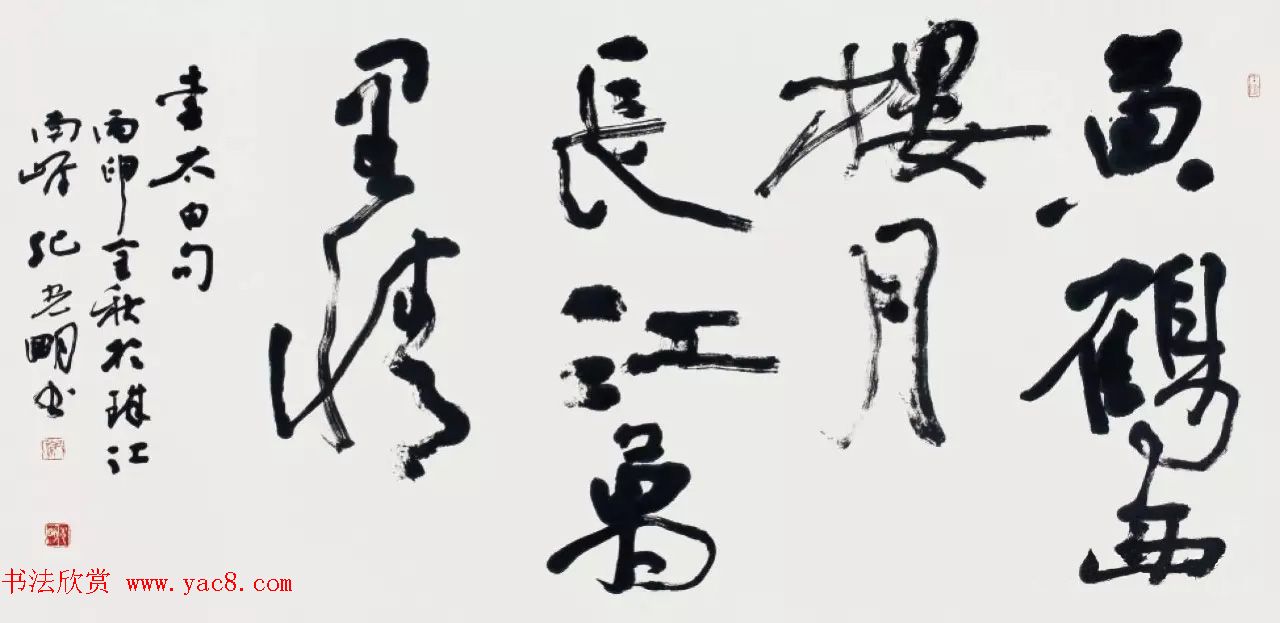 黄鶴西
樓月
長江萬
里情
李太白句
丙申金秋於珠江
南岸纪光明书
书法欣赏 www.yac8.com